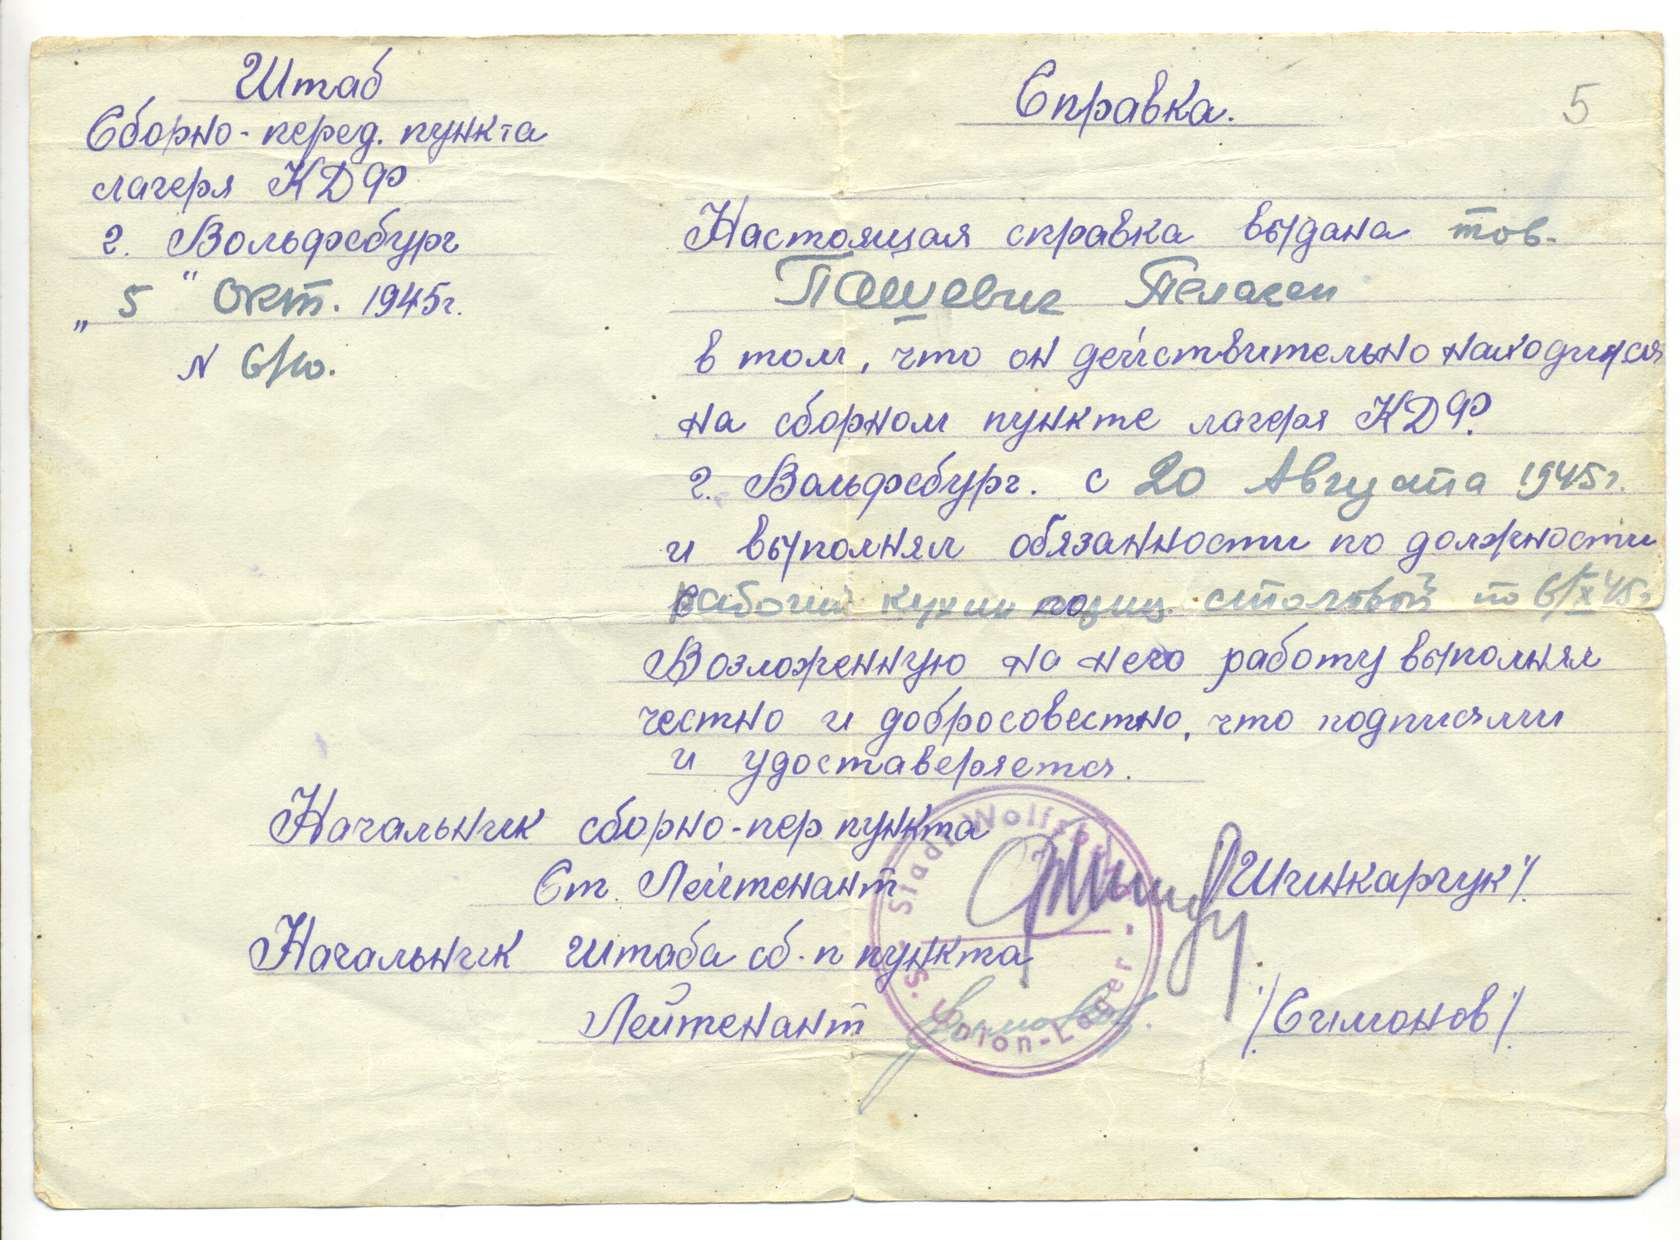 Штаб
Сборно-перед. пункта
лагеря КДФ
г. Вольфсбург
„5“ Окт. 1945г.
N 6/10.
Справка.
5
Настоящая справка выдана тов.
Пашевич
в том, что он действительно находился
на сборном пункте лагеря КДФ.
г. Вольфсбург. с 20 Августа 1945г.
и выполнял обязанности по должности
рабочий кухни столовой по 6/X 45г
Возложенную на него работу выполнял
честно и добросовестно, что подписями
и удоставеряется.
Начальник сборно-пер пункта
Ст. Лейтенант /Шинкарчук/
Начальник штаба сб. п пункта
Лейтенант /Симонов/
Stadt Wolfsburg
Union-Lager